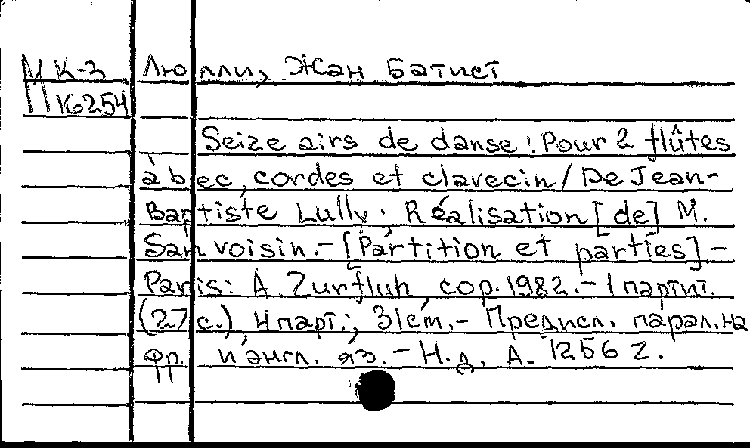 М К-3 Люлли, Жан Батист
П К6254
Seize airs de danse: Pour 2 flûtes
à bec, cordes et clavecin / De Jean-
Baptiste Lully; Réalisation [de] M.
Sanvoisin. - [Partition et parties] -
Paris: A. Zurfluh, cop. 1982. - 1 партит.
(27 с.), 4 парт.; 31 см. - Предисл. парал. на
фр. и англ. яз. - Н.д. A. 1256 Z.